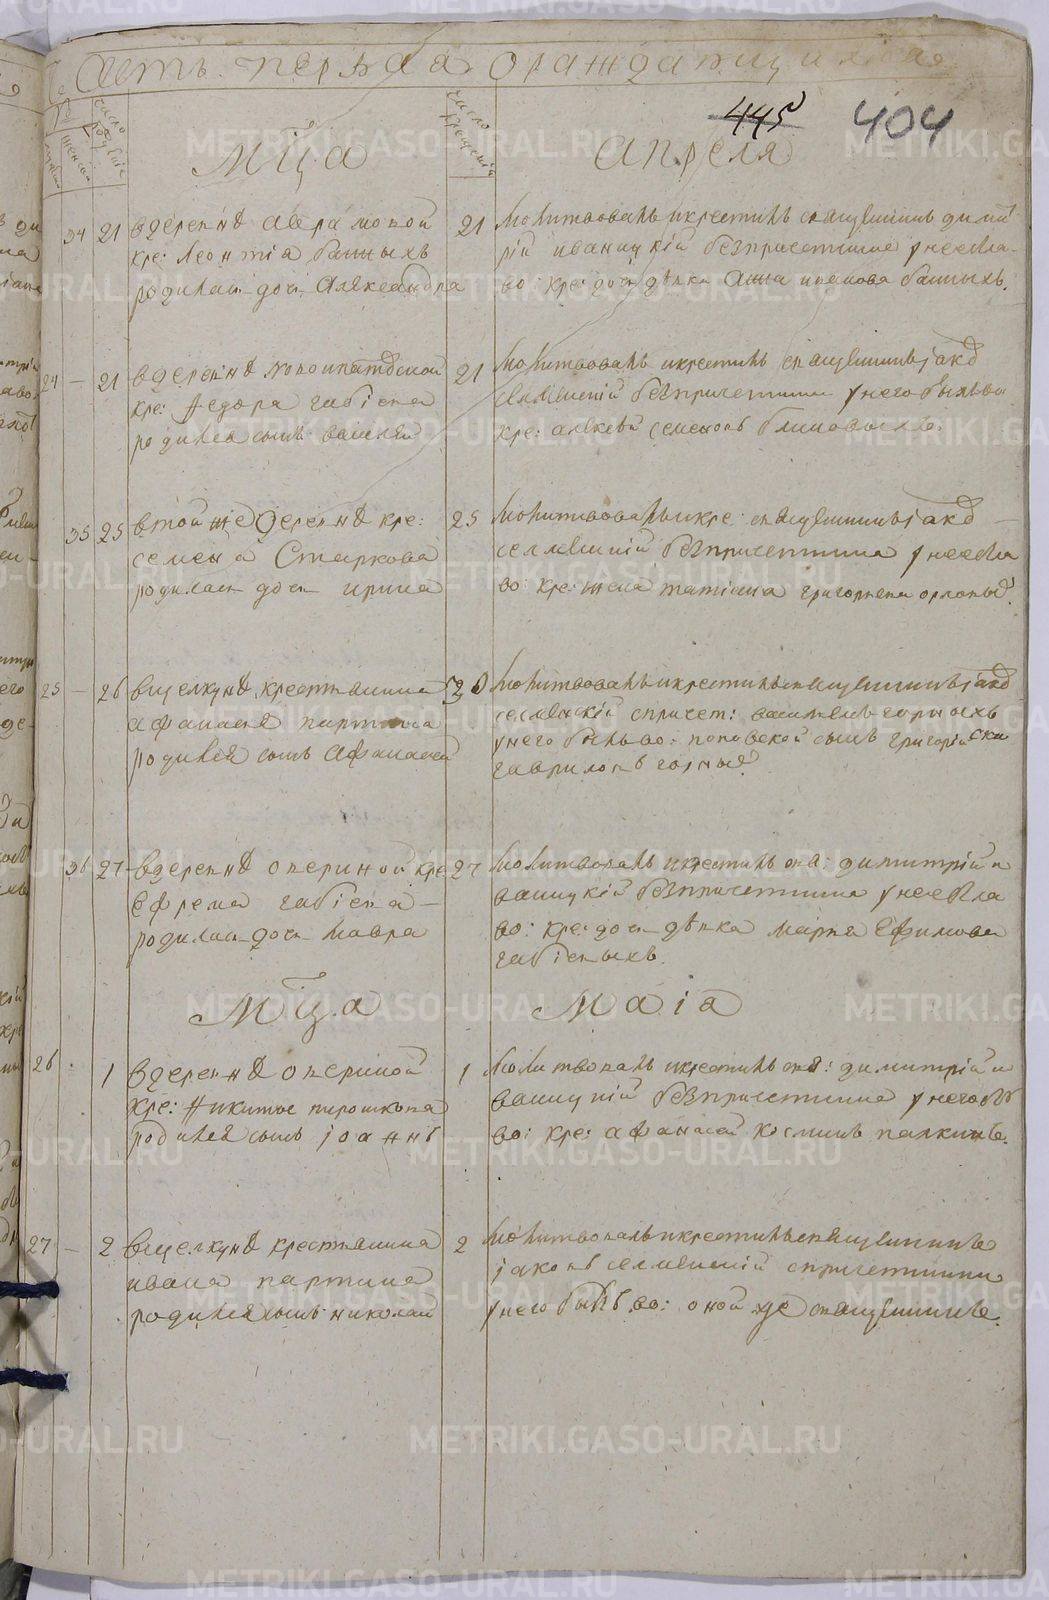 Часть первая о раждающихся
445 404
число рождения
число крещения
Мца Апреля
34 21 в деревнѣ Аврамовой
кре: Леонтiя банныхъ
родилась дочь Александра
21 Молитвовалъ и крестилъ священникъ дими
трiй иваницкiй без причетника у нее бы
во: кре: дочь дѣвка Анна банныхъ.
24 — 21 в деревнѣ новоипатовской
кре: Федора
родился сынъ василей
21 Молитвовалъ и крестилъ священникъ iаковъ
селменскiй без причетника у него былъ во
кре: алексей семеновъ блиновыхъ.
35 25 в той же деревнѣ кре:
семена Старкова
родилась дочь ирина
25 Молитвовалъ и кре: священникъ iаковъ
селменскiй без причетника у нее была
во: кре: жена татiана григорьева орловыхъ.
25 — 26 в щелкунѣ крестьянина
афанасья партина
родился сынъ Афанасей
Молитвовалъ и крестилъ священникъ iаковъ
селменскiй с причет: василемъ горныхъ
у него былъ во: поповской сынъ григорiй
гавриловъ горныхъ
36 27 в деревнѣ авериной кре
Ефрема
родилась дочь Мавра
27 Молитвовалъ и крестилъ свя: димитрiй и
ваницкiй без причетника у нее была
во: кре: дочь дѣвка марья Ефимова
Мца Маiя
26 1 в деревнѣ авериной
кре: Никиты пирошкова
родился сынъ iоаннъ
1 Молитвовалъ и крестилъ свя: димитрiй и
ваницкiй без причетника у него бы
во: кре: афанасей косминъ палкинъ.
27 — 2 в щелкунѣ крестьянина
ивана партина
родился сынъ николай
2 Молитвовалъ и крестилъ священникъ
iаковъ селменскiй с причетники
у него былъ во: оной же священникъ.
METRIKI.GASO-URAL.RU